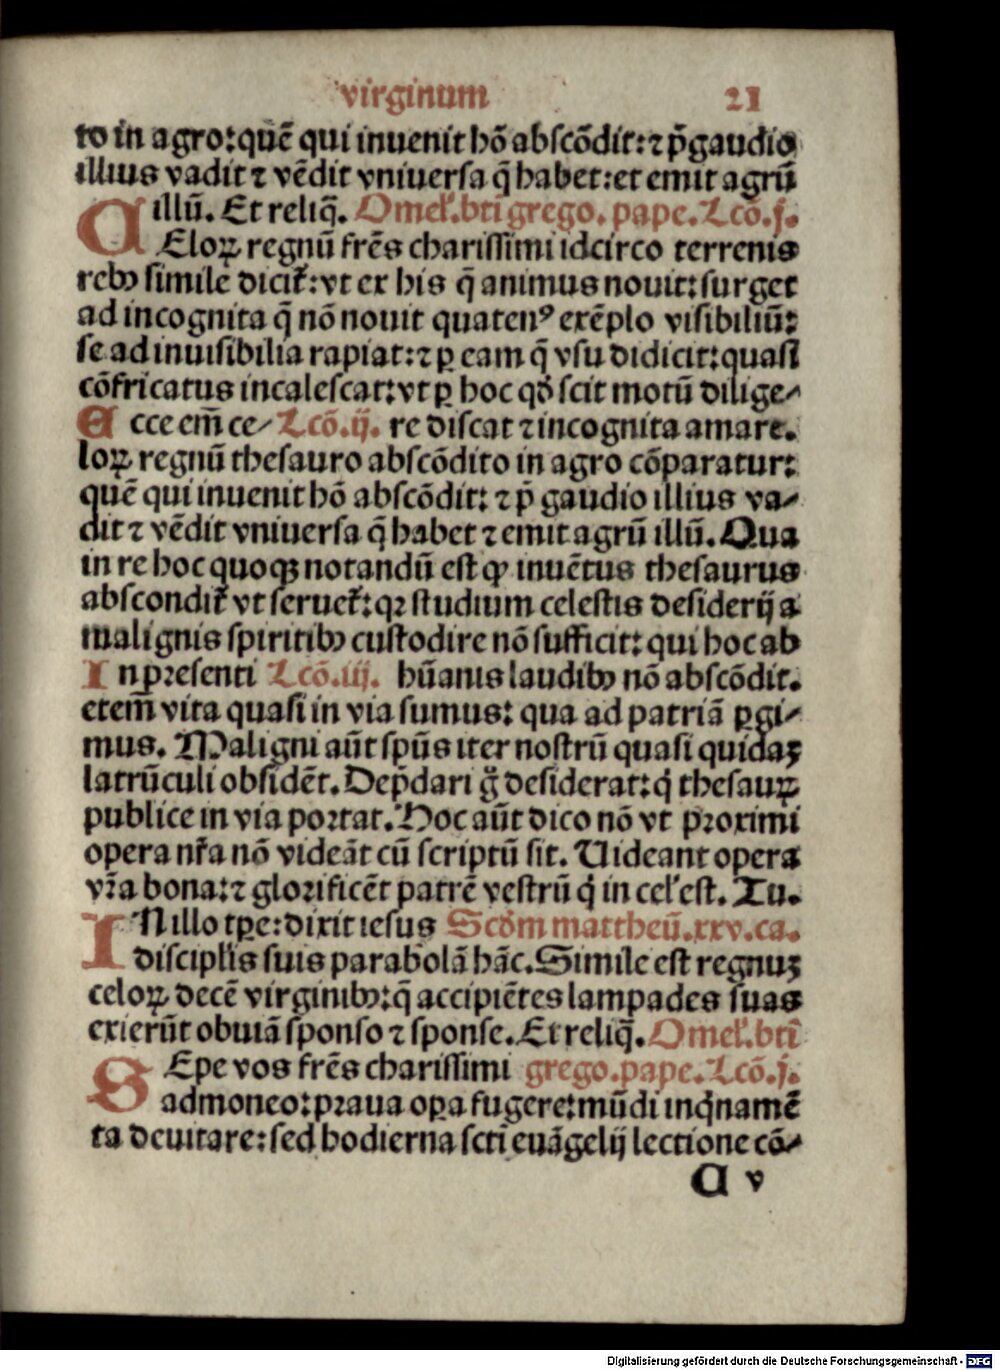 virginum 21
to in agro:quē qui inuenit hō abscōdit:⁊ p̄gaudio
illius vadit ⁊ vēdit vniuersa q̄ habet:et emit agrū
illū. Et reliq̄. Omel̕.bti grego. pape. Lcō.j.
CEloꝝ regnū frēs charissimi idcirco terrenis
rebꝰ simile dicit̕:vt ex his q̄ animus nouit:surget
ad incognita q̄ nō nouit quatenꝰ exēplo visibiliū:
se ad inuisibilia rapiat:⁊ ꝑ eam q̄ vsu didicit:quasi
cōfricatus incalescat:vt ꝑ hoc qd̕ scit motū dilige⸗
Ecce em̄ ce⸗ Lcō.ij. re discat ⁊ incognita amare.
loꝝ regnū thesauro abscōdito in agro cōparatur:
quē qui inuenit hō abscōdit: ⁊ p̄ gaudio illius va⸗
dit ⁊ vēdit vniuersa q̄ habet ⁊ emit agrū illū. Qua
in re hoc quoqꝫ notandū est ꝙ inuētus thesaurus
abscondit̕ vt seruet̕:qꝛ studium celestis desiderij a
malignis spiritibꝰ custodire nō sufficit: qui hoc ab
In pꝛesenti Lcō.iij. hūanis laudibꝰ nō abscōdit.
etem̄ vita quasi in via sumus: qua ad patriā ꝑgi⸗
mus. Maligni aūt spūs iter nostrū quasi quidaꝫ
latrūculi obsidēt. Dep̄dari g̊ desiderat:q̇ thesauꝝ
publice in via poꝛtat. Hoc aūt dico nō vt pꝛoximi
opera nr̄a nō videāt cū scriptū sit. Uideant opera
vr̄a bona:⁊ gloꝛificēt patrē vestrū q̇ in cel̕ est. Tu.
IN illo tꝑe:dixit iesus Scd̕m mattheū.xxv.ca.
discipl̕is suis parabolā hāc. Simile est regnuꝫ
celoꝝ decē virginibꝰ:q̄ accipiētes lampades suas
exierūt obuiā sponso ⁊ sponse. Et reliq̄. Omel̕.bti
SEpe vos frēs charissimi grego.pape.Lcō.j.
admoneo:pꝛaua oꝑa fugere:mūdi inq̇namē
ta deuitare:sed hodierna scti euāgelij lectione cō⸗
C v
Digitalisierung gefördert durch die Deutsche Forschungsgemeinschaft - DFG